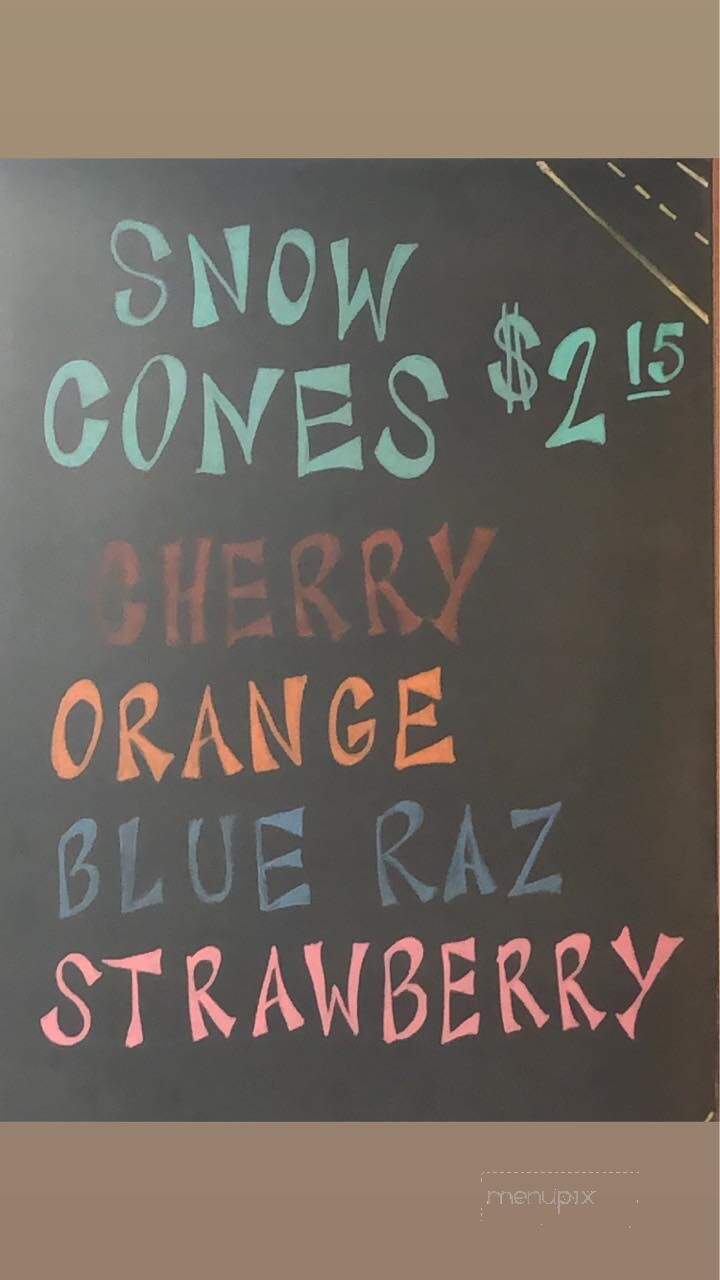 SNOW
CONES $2 15
CHERRY
ORANGE
BLUE RAZ
STRAWBERRY
menupix